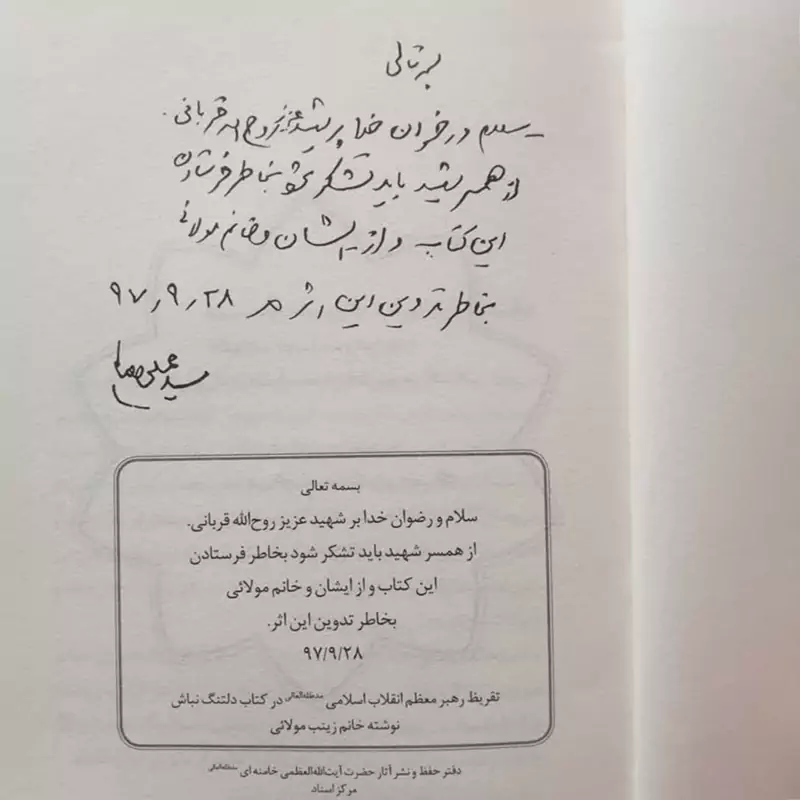 بسمه تعالی
سلام و رضوان خدا بر شهید عزیز روح‌الله قربانی.
از همسر شهید باید تشکر شود بخاطر فرستادن
این کتاب و از ایشان و خانم مولائی
بخاطر تدوین این اثر ۹۷٫۹٫۲۸
سید علی خامنه‌ای
بسمه تعالی
سلام و رضوان خدا بر شهید عزیز روح‌الله قربانی.
از همسر شهید باید تشکر شود بخاطر فرستادن
این کتاب و از ایشان و خانم مولائی
بخاطر تدوین این اثر.
۹۷/۹/۲۸
تقریظ رهبر معظم انقلاب اسلامی مدظله‌العالی در کتاب دلتنگ نباش
نوشته خانم زینب مولائی
دفتر حفظ و نشر آثار حضرت آیت‌الله‌العظمی خامنه‌ای مدظله‌العالی
مرکز اسناد